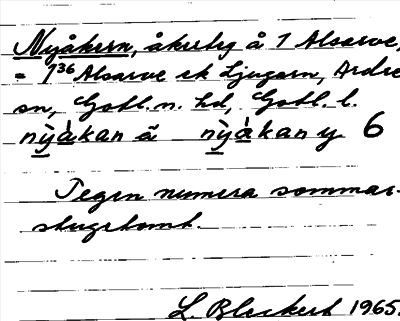 Nyåkern, åkerteg å 1 Alsarve,
= 1³⁶ Alsarve ek Ljugarn, Ardre
sn, Gotl. n. hd, Gotl. l.
nỳåkan ā nỳåkan y 6
Tegen numera sommar-
stugetomt.
L. Bleckert 1965.